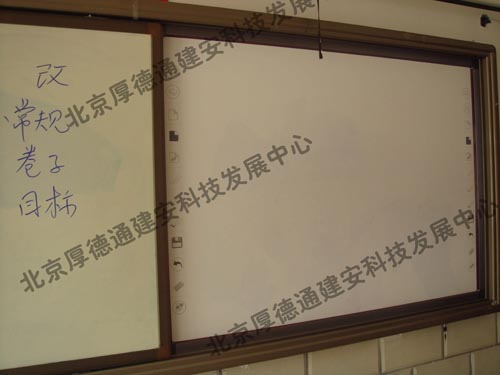 改
常规
卷子
目标
北京厚德通建安科技发展中心
北京厚德通建安科技发展中心
北京厚德通建安科技发展中心